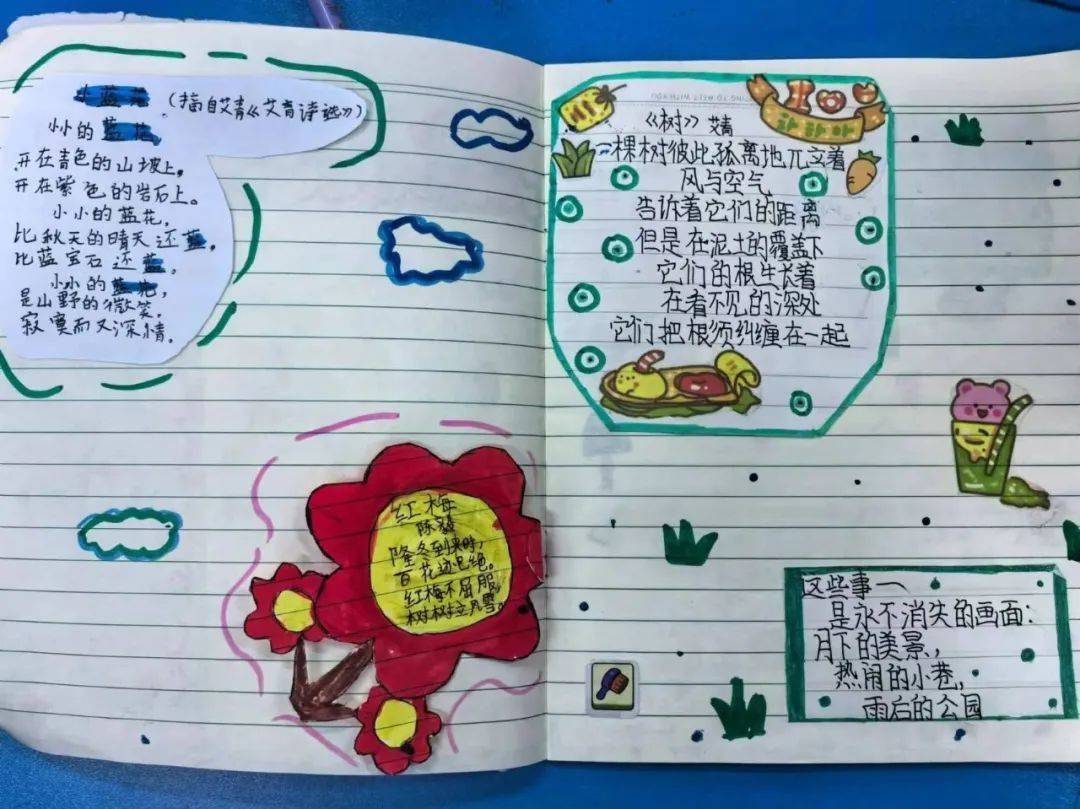 小蓝花 (摘自艾青《艾青诗选》)
小小的蓝花,
开在青色的山坡上,
开在紫色的岩石上。
小小的蓝花,
比秋天的晴天还蓝,
比蓝宝石还蓝。
小小的蓝花,
是山野的微笑,
寂寞而又深情。
红梅
陈毅
隆冬到来时,
百花迹已绝。
红梅不屈服,
树树立风雪。
《树》 艾青
一棵树彼此孤离地兀立着
风与空气
告诉着它们的距离
但是在泥土的覆盖下
它们的根生长着
在看不见的深处
它们把根须纠缠在一起
这些事一
是永不消失的画面:
月下的美景,
热闹的小巷,
雨后的公园